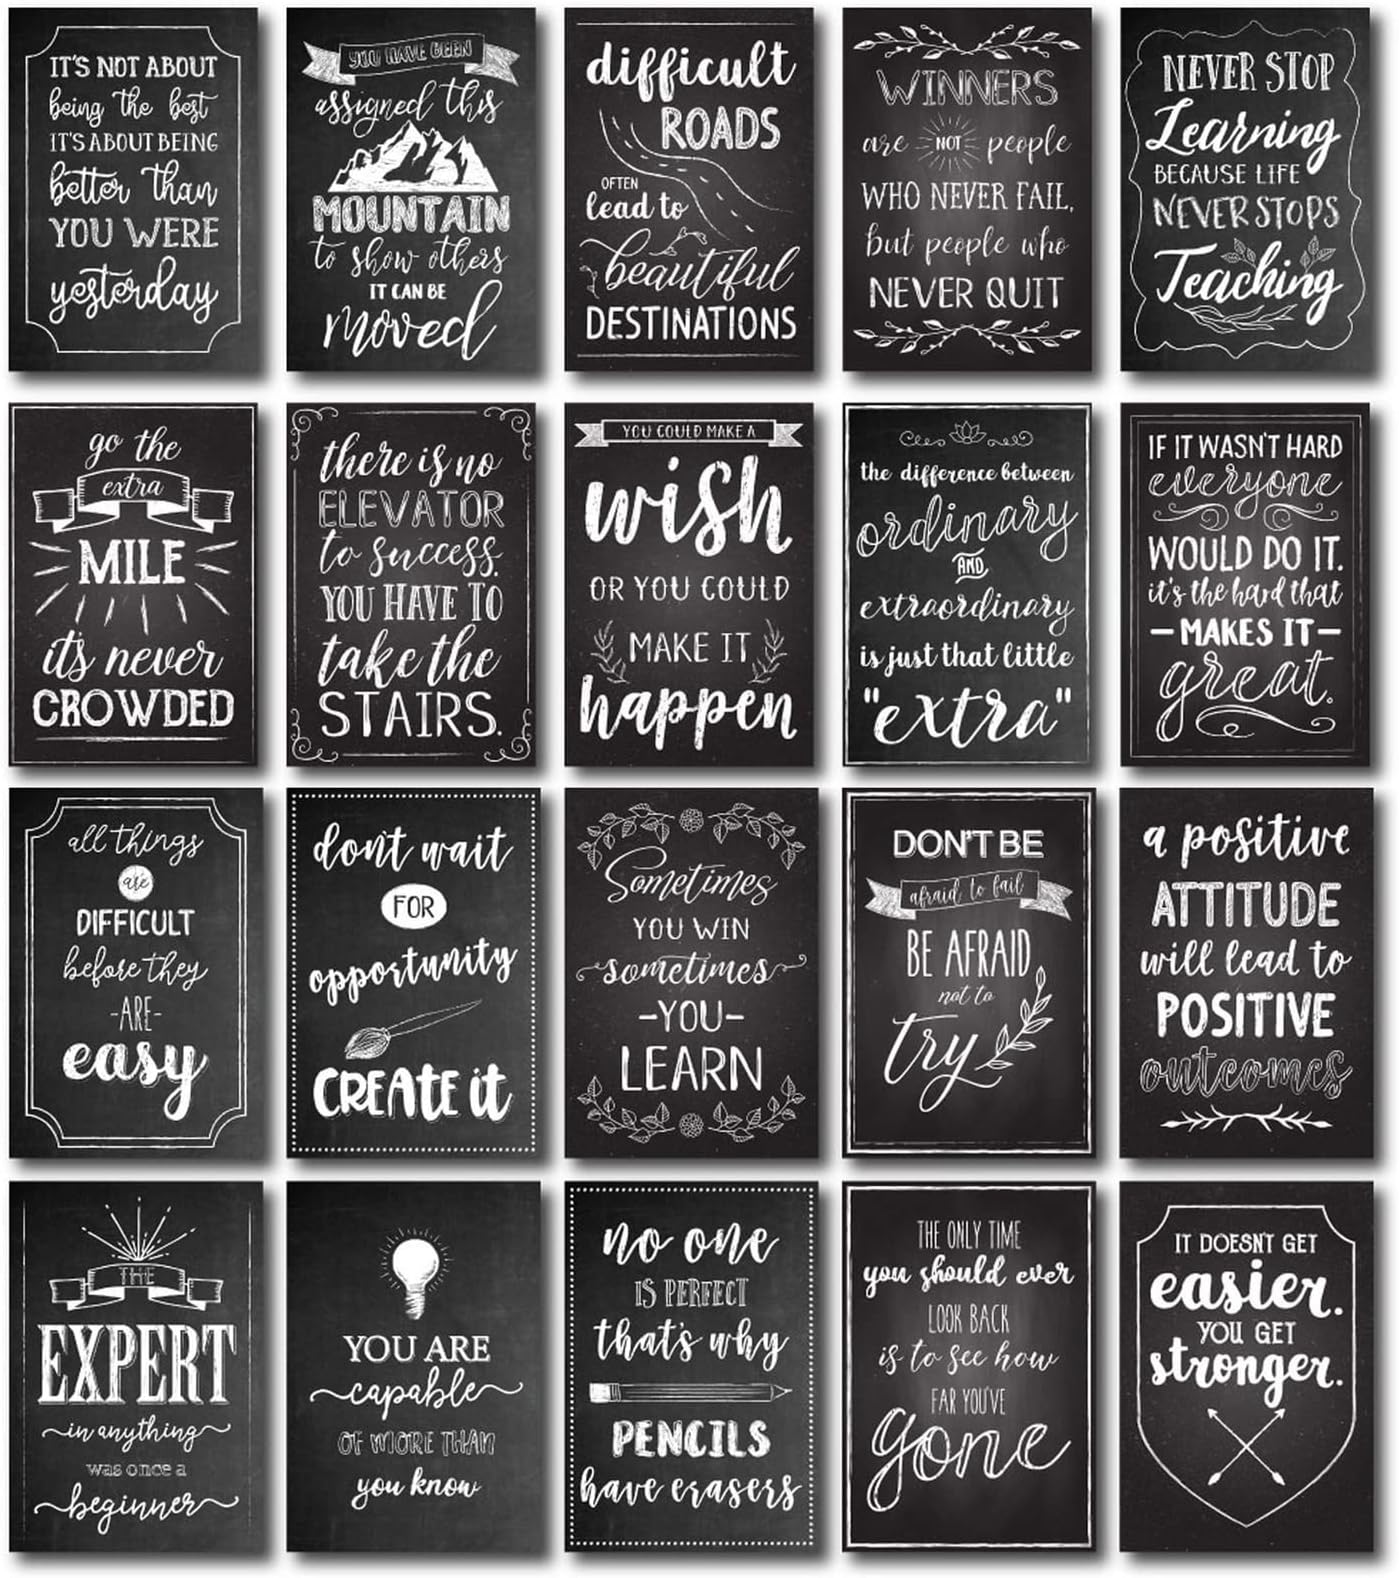 IT'S NOT ABOUT
being the best
IT'S ABOUT BEING
better than
YOU WERE
yesterday
YOU HAVE BEEN
assigned this
MOUNTAIN
to show others
IT CAN BE
moved
difficult
ROADS
OFTEN
lead to
beautiful
DESTINATIONS
WINNERS
are NOT people
WHO NEVER FAIL,
but people who
NEVER QUIT
NEVER STOP
Learning
BECAUSE LIFE
NEVER STOPS
Teaching
go the
extra
MILE
it's never
CROWDED
there is no
ELEVATOR
to success.
YOU HAVE TO
take the
STAIRS.
YOU COULD MAKE A
wish
OR YOU COULD
MAKE IT
happen
the difference between
ordinary
AND
extraordinary
is just that little
"extra"
IF IT WASN'T HARD
everyone
WOULD DO IT.
it's the hard that
-MAKES IT-
great.
all things
are
DIFFICULT
before they
-ARE-
easy
don't wait
FOR
opportunity
CREATE it
Sometimes
YOU WIN
sometimes
-YOU-
LEARN
DON'T BE
afraid to fail
BE AFRAID
not to
try
a positive
ATTITUDE
will lead to
POSITIVE
outcomes
THE
EXPERT
in anything
was once a
beginner
YOU ARE
capable
OF MORE THAN
you know
no one
IS PERFECT
that's why
PENCILS
have erasers
THE ONLY TIME
you should ever
LOOK BACK
is to see how
FAR YOU'VE
gone
IT DOESN'T GET
easier.
YOU GET
stronger.